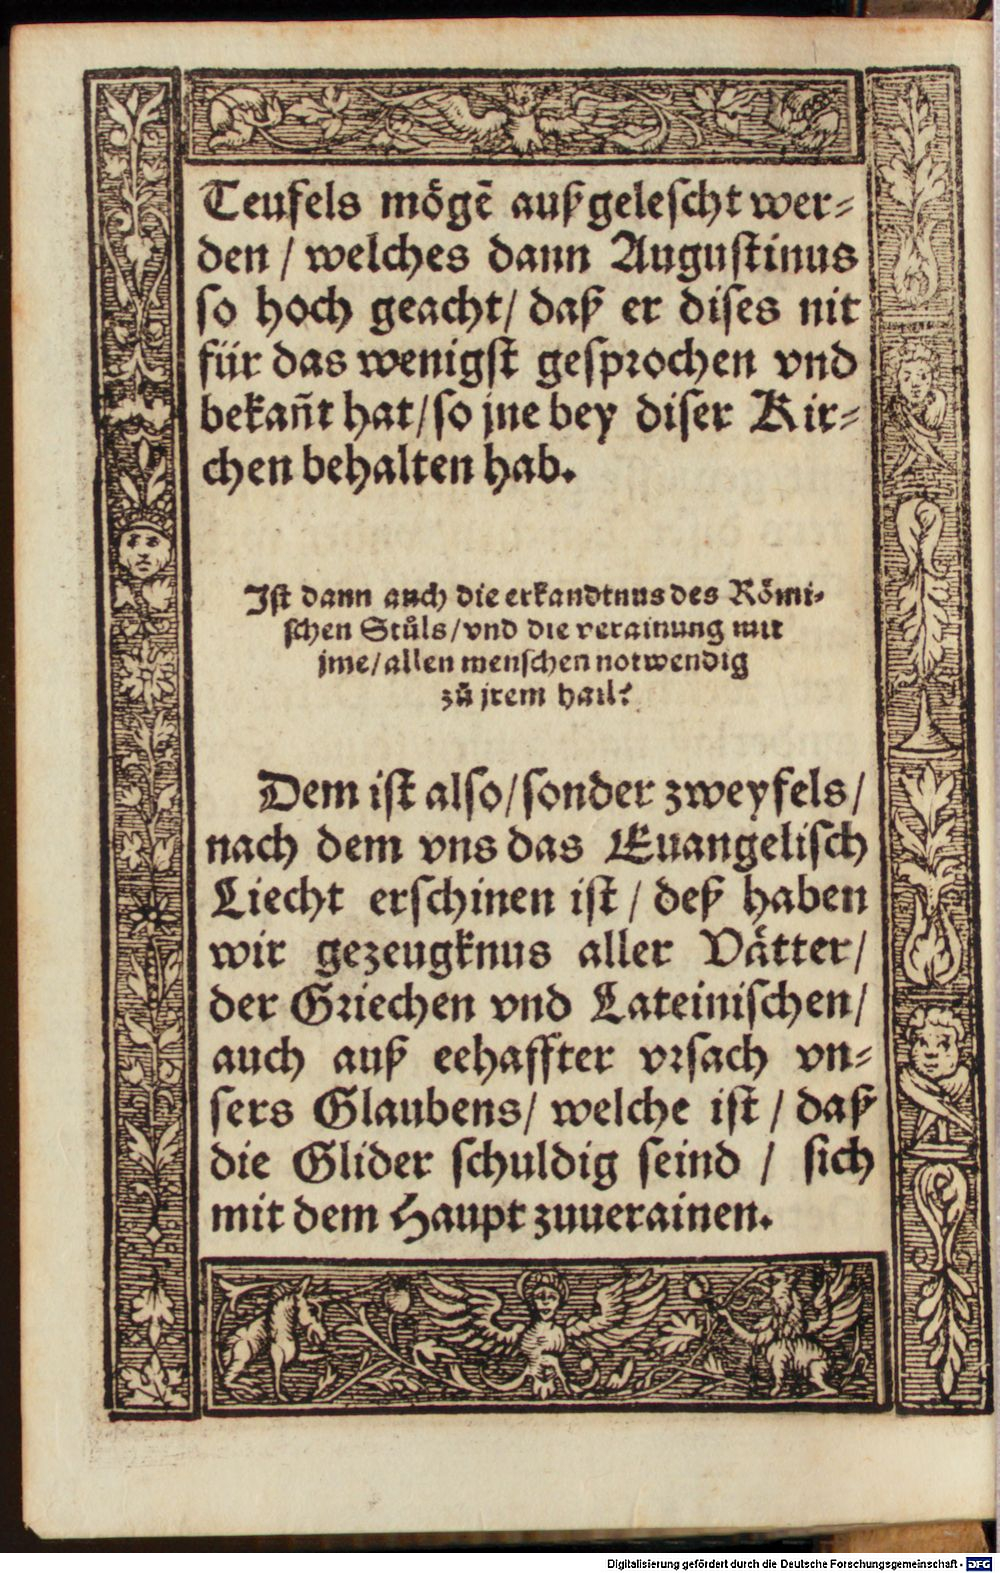 Teufels mögē außgelescht wer⸗
den / welches dann Augustinus
so hoch geacht/ daß er dises nit
für das wenigst gesprochen vnd
bekañt hat/so jne bey diser Kir⸗
chen behalten hab.
Ist dann auch die erkandtnus des Römi⸗
schen Stůls/vnd die verainung mit
jme/allen menschen notwendig
zů jrem hail?
Dem ist also/sonder zweyfels/
nach dem vns das Euangelisch
Liecht erschinen ist / deß haben
wir gezeugknus aller Vätter/
der Griechen vnd Lateinischen/
auch auß eehaffter vrsach vn⸗
sers Glaubens/ welche ist / daß
die Glider schuldig seind / sich
mit dem Haupt zuuerainen.
Digitalisierung gefördert durch die Deutsche Forschungsgemeinschaft - DFG